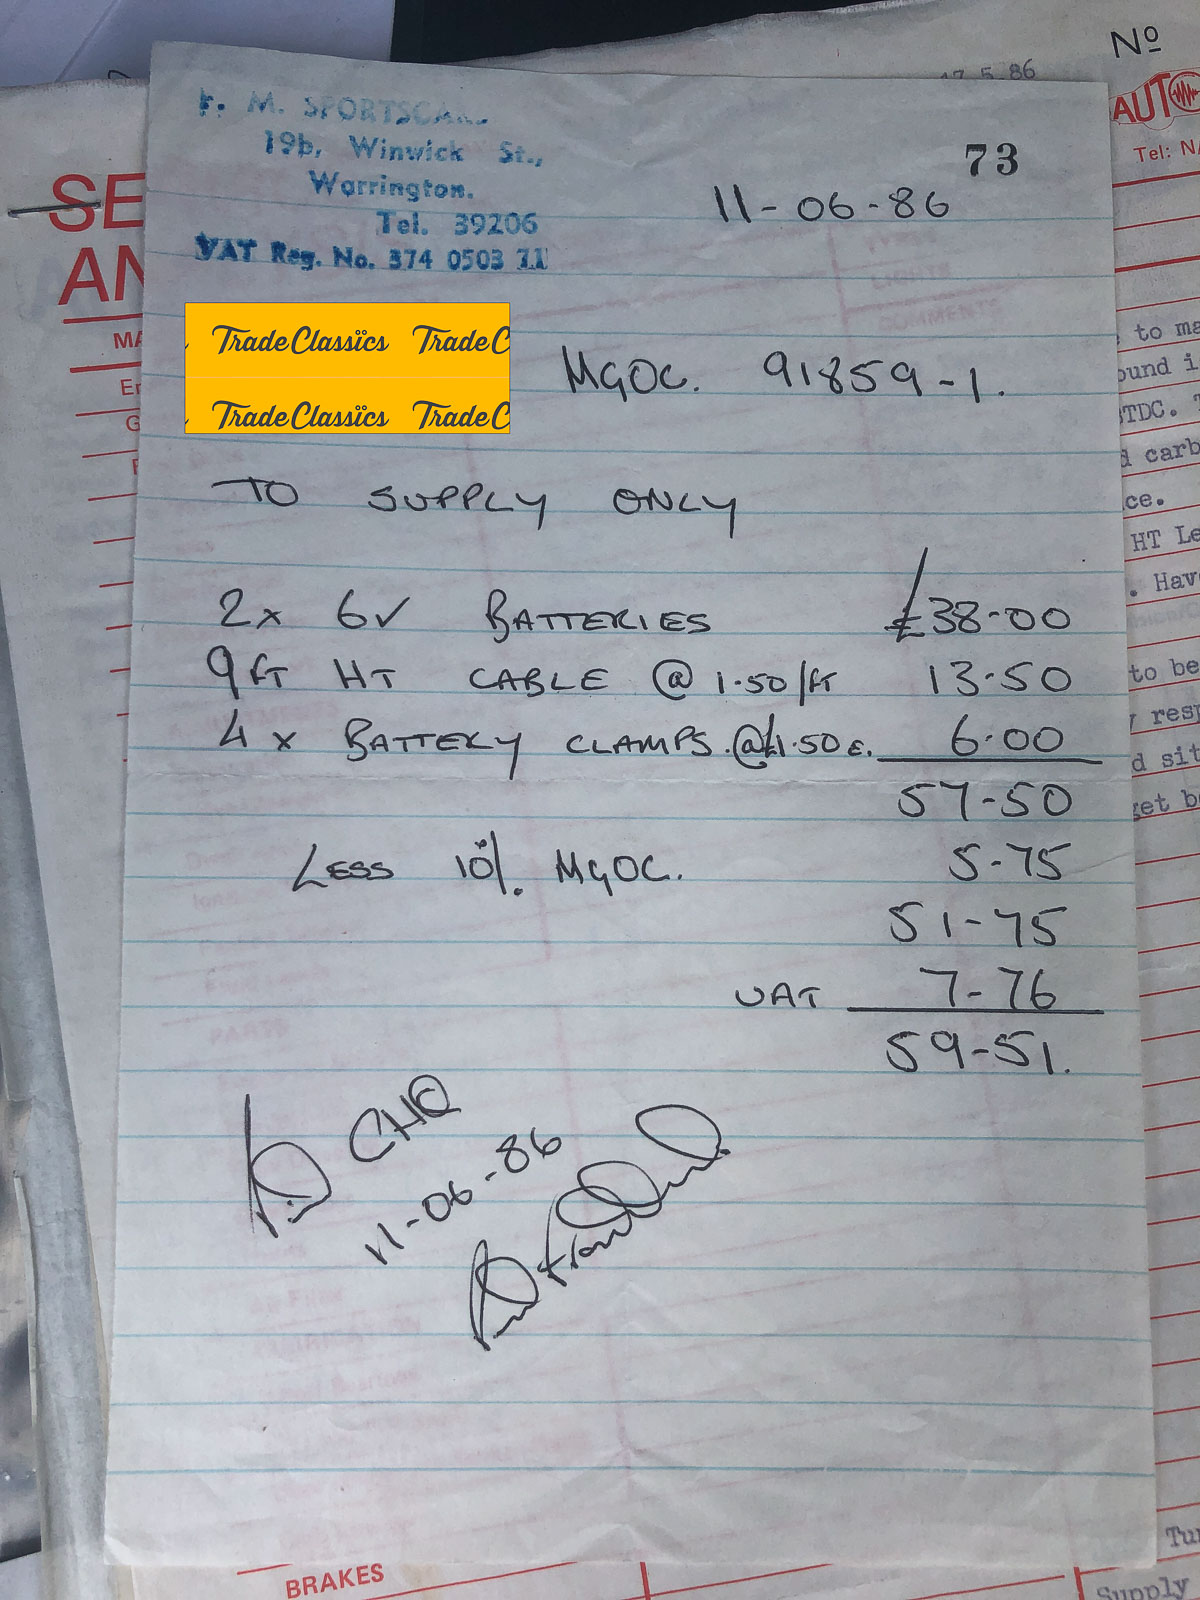 Nº
17.5.86
AUTO
Tel:
SE
AN
M. SPORTSCA
19b, Winwick St.,
Warrington.
Tel. 39206
VAT Reg. No. 374 0503 11
73
11-06-86
TradeClassics TradeC
TradeClassics TradeC
MGOC. 91859-1.
TO SUPPLY ONLY
2x 6V BATTERIES £38-00
9FT HT CABLE @ 1.50/FT 13-50
4 x BATTERY CLAMPS.@£1.50 E. 6.00
57-50
LESS 10%. MGOC. 5-75
51-75
VAT 7-76
59-51.
PD CHQ
11-06-86
to ma
ound i
TDC.
carb
ce.
HT Le
. Hav
to be
resp
d sit
get b
BRAKES
Tu
Supply